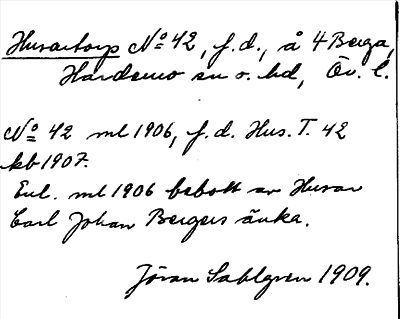 Husartorp No 42, f.d., å 4 Berga,
Hardemo sn o. hd, Ör. l.
No 42 ml 1906, f.d. Hus. T. 42
kb 1907.
Enl. ml 1906 bebott av Husar
Carl Johan Bergers änka.
Jöran Sahlgren 1909.